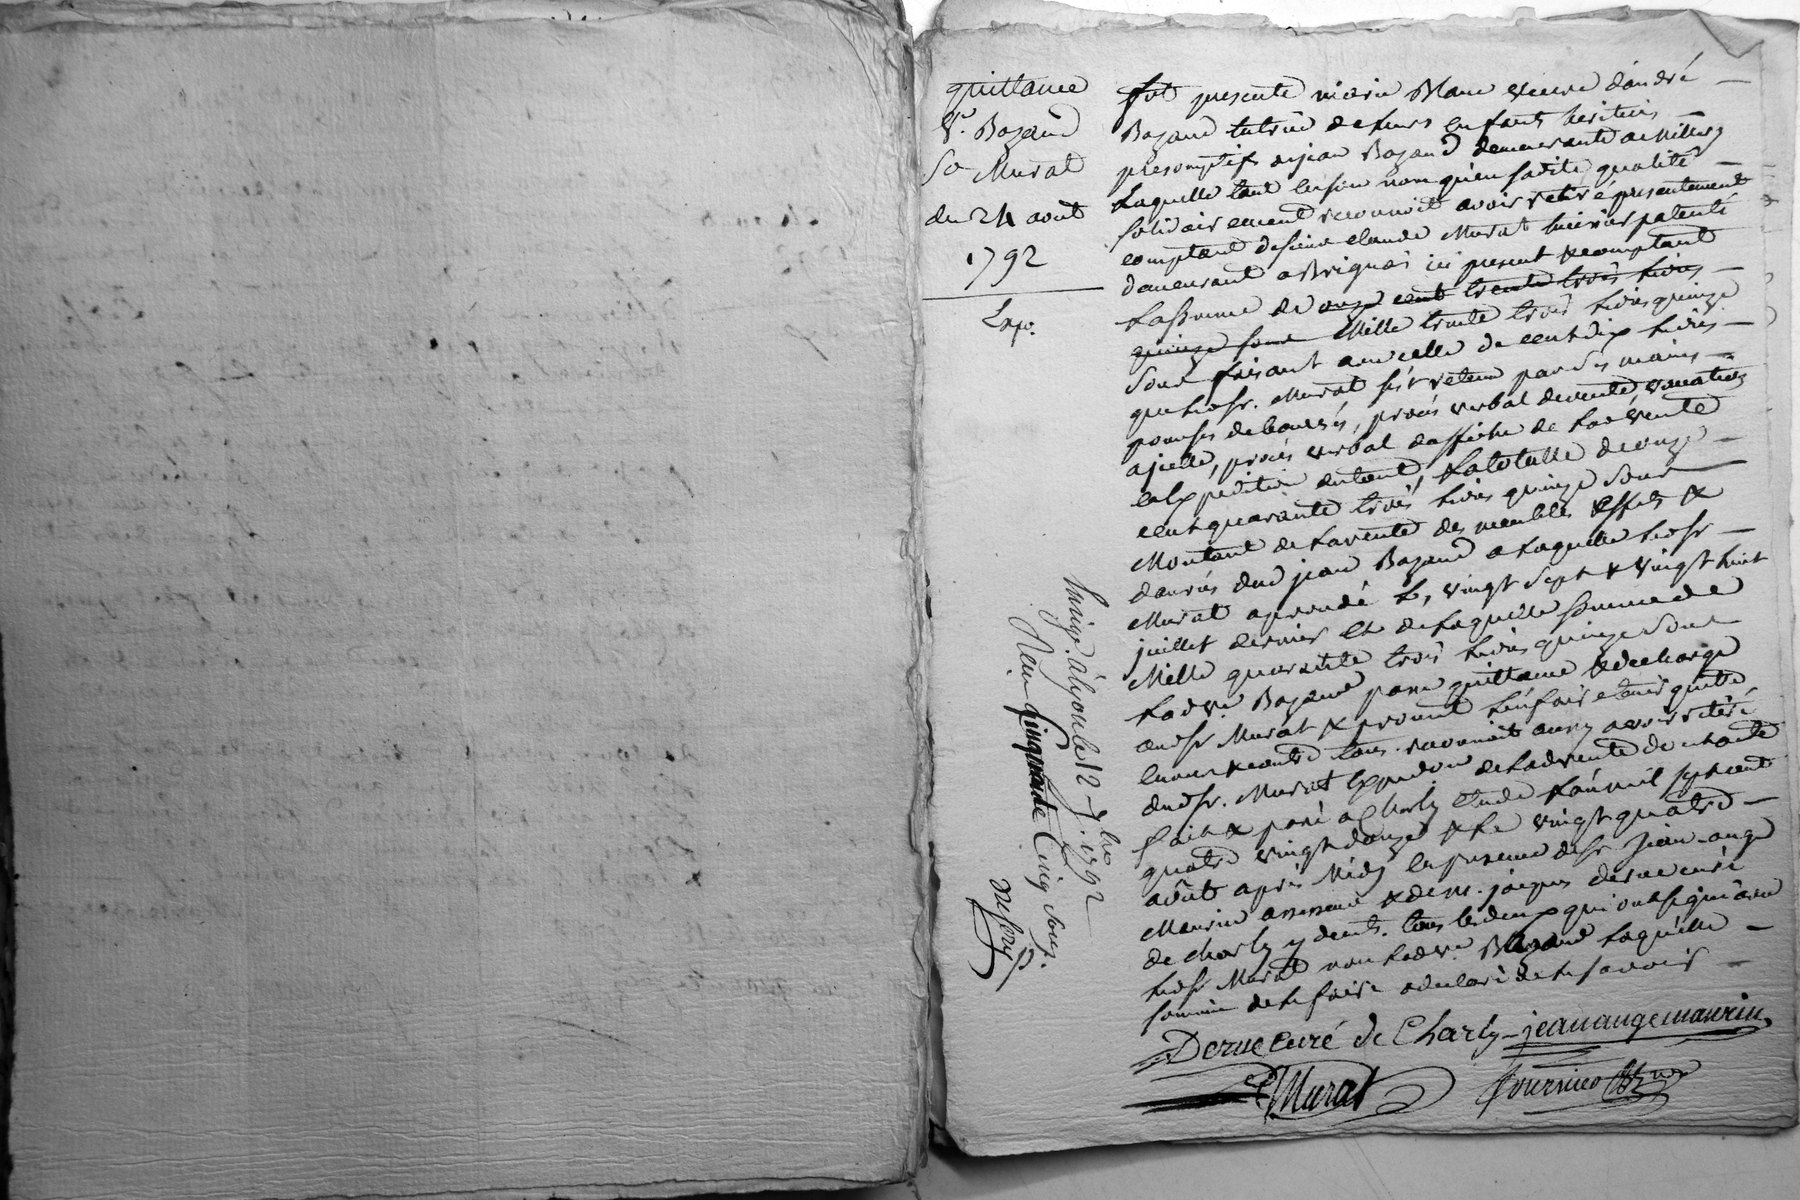 quittance
Ve. Bazand
Sr Murat
du 24 août
1792
Exp.
fut presente marie Blanc veuve d'andré
Bazand tutrice de leurs enfants heritiers
presomptifs de jean Bazand demeurante a Millery
Laquelle tant en son nom qu'en sadite qualité
solidairement reconnoit avoir retiré présentement
comptant de sieur claude Murat huissier patenté
demeurant a Brignais ici present & comptant
La somme de onze cent trente trois livres
quinze sous Mille trente trois livres quinze
sous faisant avec celle de cent dix livres
que led. sr. Murat s'est retenu par ses mains
pour ses deboursés, procès verbal de vente, vacations
a icelle, procès verbal d'affiche de lad. vente
expedition du tout, la totalle de onze
cent quarante trois livres quinze sous
Montant de la vente des meubles effets &
denrées dud. jean Bazand a laquelle led. sr
Murat a procedé les vingt sept & vingt huit
juillet dernier et de laquelle somme de
Mille quarante trois livres quinze sous
lad. ve. Bazand passe quittance & decharge
aud. sr Murat & promet l'en faire tenir quitte
envers & contre tous. reconnoit aussy avoir retiré
dud. sr. Murat expedition de lad. vente dont acte
fait & passé a Charly Etude l'an mil sept cent
quatre vingt douze & le vingt quatre
août après Midy en presence de sr Jean-ange
Maurin & de m. jacques derue curé
de charly y demts. tous les deux qui ont signé avec
led. sr Murat non lad. ve. Bazand laquelle
sommée de le faire a declaré ne le savoir
Derue curé de Charly jean ange maurin
Murat fournier
7bre. 1792
cinquante cinq sous.